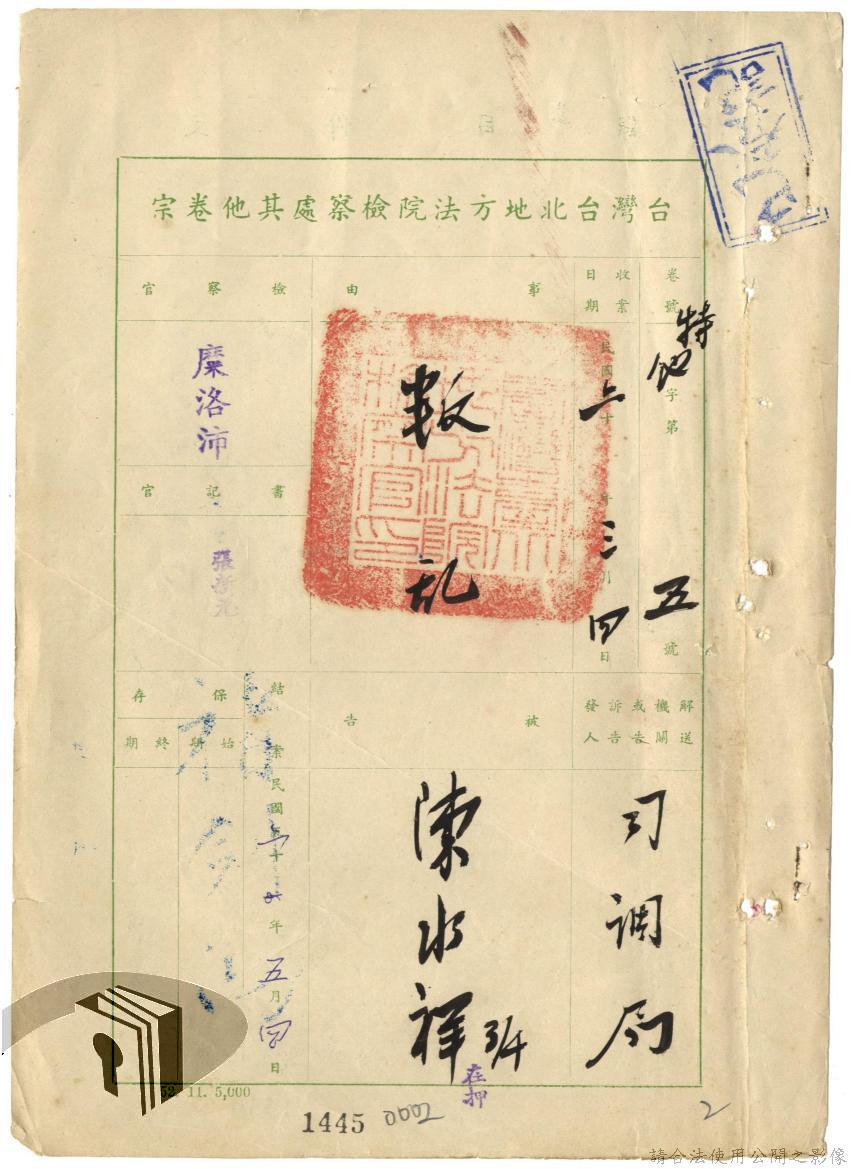 台灣台北地方法院檢察處其他卷宗
卷號
特他字第五號
收案日期
民國六十年三月四日
事由
叛乱
檢察官
糜洛沛
書記官
解送機關或告訴告發人
司調局
被告
陳水祥 3/4
在押
結案
民國六十年五月四日
保存
始期
終期
52. 11. 5,000
1445
0002
2
請合法使用公開之影像